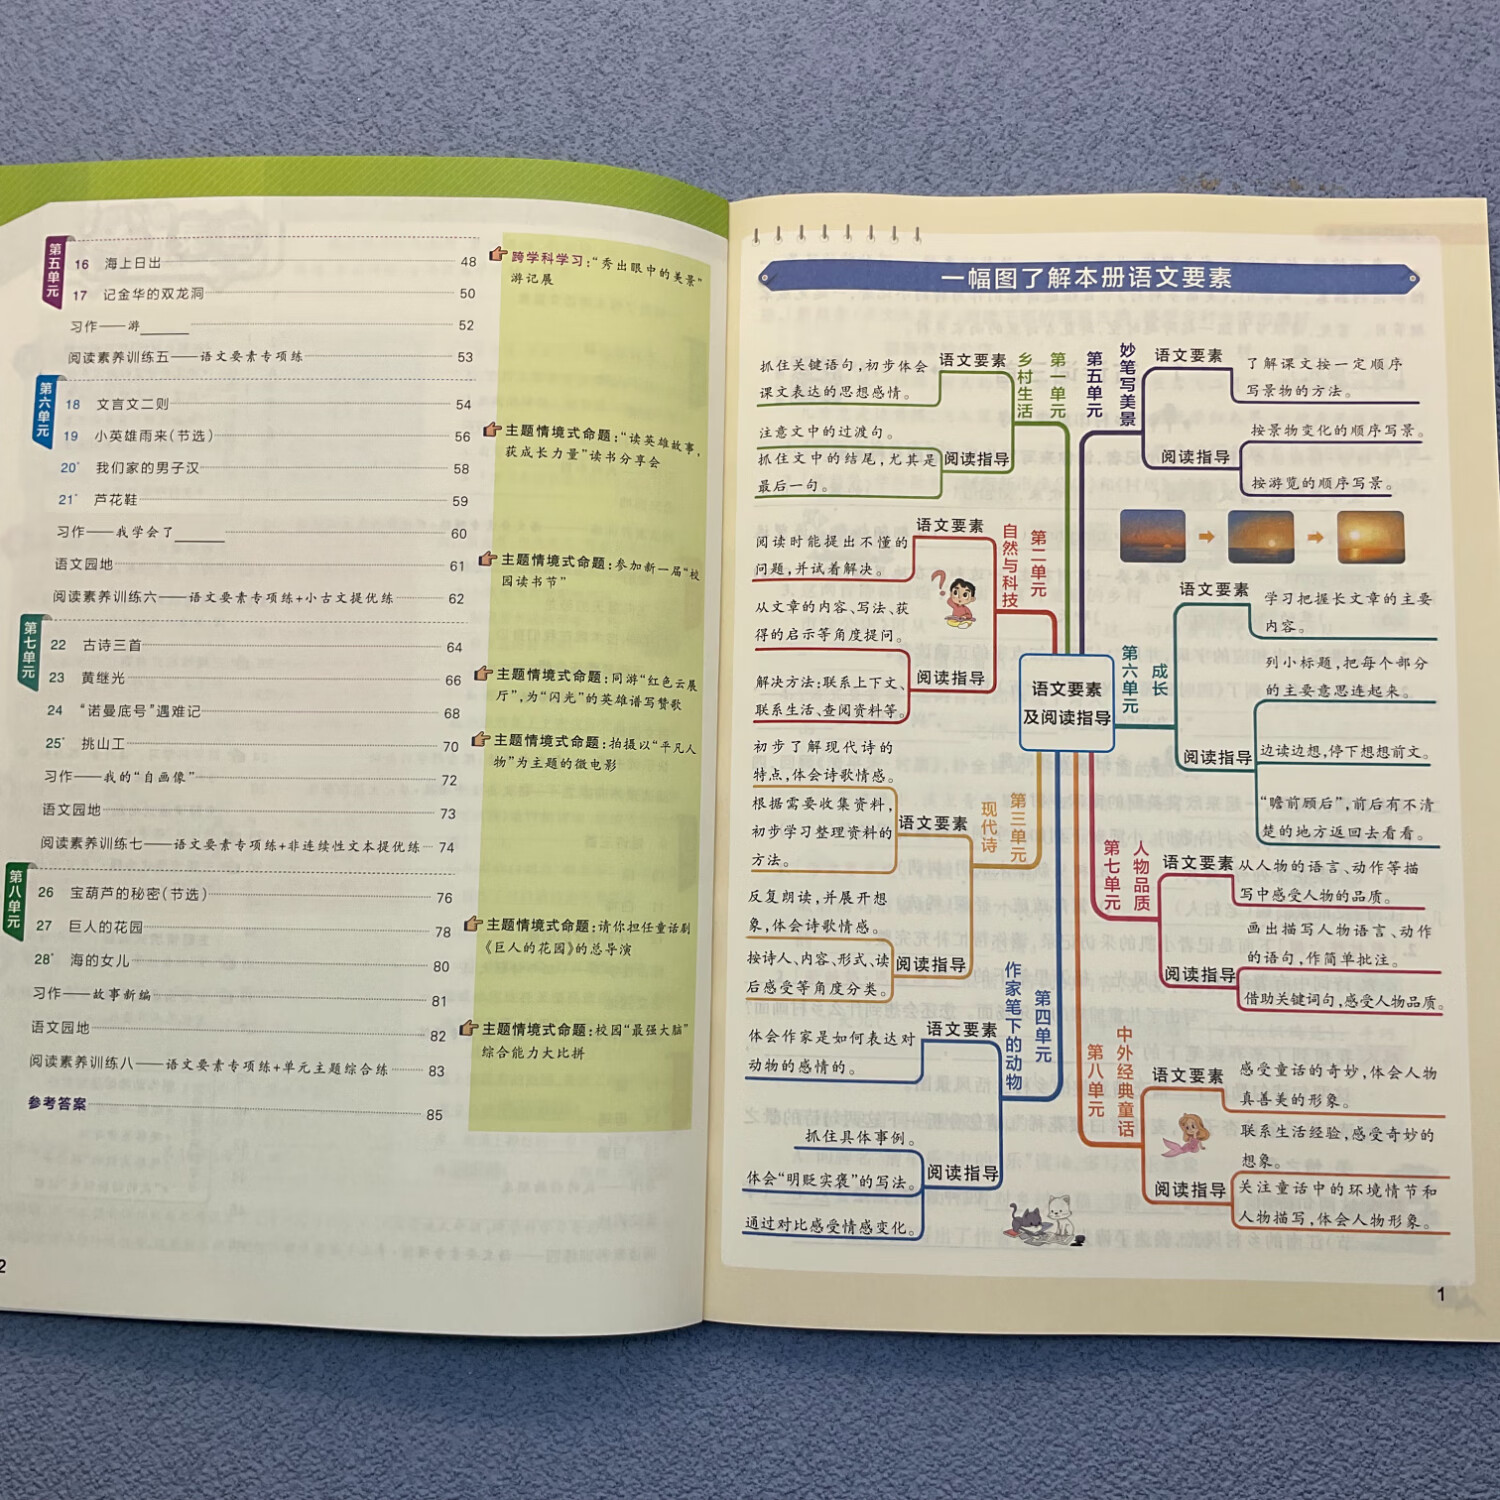 第五单元
16 海上日出 48
17 记金华的双龙洞 50
习作——游______ 52
阅读素养训练五——语文要素专项练 53
第六单元
18 文言文二则 54
19 小英雄雨来(节选) 56
20* 我们家的男子汉 58
21* 芦花鞋 59
习作——我学会了______ 60
语文园地 61
阅读素养训练六——语文要素专项练+小古文提优练 62
第七单元
22 古诗三首 64
23 黄继光 66
24 “诺曼底号”遇难记 68
25* 挑山工 70
习作——我的“自画像” 72
语文园地 73
阅读素养训练七——语文要素专项练+非连续性文本提优练 74
第八单元
26 宝葫芦的秘密(节选) 76
27 巨人的花园 78
28* 海的女儿 80
习作——故事新编 81
语文园地 82
阅读素养训练八——语文要素专项练+单元主题综合练 83
参考答案 85
跨学科学习:“秀出眼中的美景”
游记展
主题情境式命题:“读英雄故事,
获成长力量”读书分享会
主题情境式命题:参加新一届“校
园读书节”
主题情境式命题:同游“红色云展
厅”,为“闪光”的英雄谱写赞歌
主题情境式命题:拍摄以“平凡人
物”为主题的微电影
主题情境式命题:请你担任童话剧
《巨人的花园》的总导演
主题情境式命题:校园“最强大脑”
综合能力大比拼
2
一幅图了解本册语文要素
语文要素
及阅读指导
第一单元
乡村生活
语文要素
抓住关键语句,初步体会
课文表达的思想感情。
阅读指导
注意文中的过渡句。
抓住文中的结尾,尤其是
最后一句。
第二单元
自然与科技
语文要素
阅读时能提出不懂的
问题,并试着解决。
阅读指导
从文章的内容、写法、获
得的启示等角度提问。
解决方法:联系上下文、
联系生活、查阅资料等。
第三单元
现代诗
语文要素
初步了解现代诗的
特点,体会诗歌情感。
根据需要收集资料,
初步学习整理资料的
方法。
阅读指导
反复朗读,并展开想
象,体会诗歌情感。
按诗人、内容、形式、读
后感受等角度分类。
第四单元
作家笔下的动物
语文要素
体会作家是如何表达对
动物的感情的。
阅读指导
抓住具体事例。
体会“明贬实褒”的写法。
通过对比感受情感变化。
第五单元
妙笔写美景
语文要素
了解课文按一定顺序
写景物的方法。
阅读指导
按景物变化的顺序写景。
按游览的顺序写景。
第六单元
成长
语文要素
学习把握长文章的主要
内容。
阅读指导
列小标题,把每个部分
的主要意思连起来。
边读边想,停下想想前文。
“瞻前顾后”,前后有不清
楚的地方返回去看看。
第七单元
人物品质
语文要素
从人物的语言、动作等描
写中感受人物的品质。
阅读指导
画出描写人物语言、动作
的语句,作简单批注。
借助关键词句,感受人物品质。
第八单元
中外经典童话
语文要素
感受童话的奇妙,体会人物
真善美的形象。
阅读指导
联系生活经验,感受奇妙的
想象。
关注童话中的环境情节和
人物描写,体会人物形象。
1